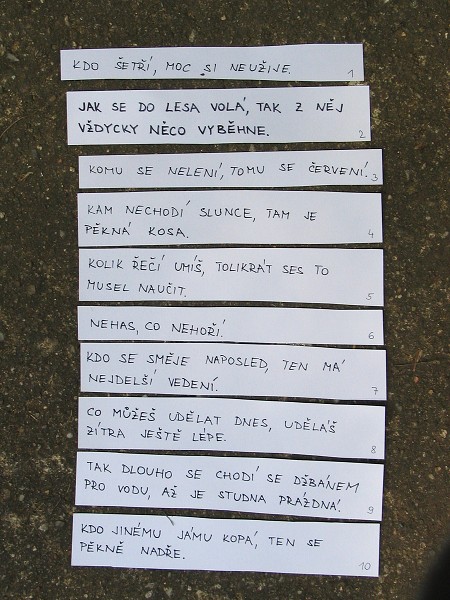 KDO ŠETŘÍ, MOC SI NEUŽIJE.
1
JAK SE DO LESA VOLÁ, TAK Z NĚJ
VŽDYCKY NĚCO VYBĚHNE.
2
KOMU SE NELENÍ, TOMU SE ČERVENÍ.
3
KAM NECHODÍ SLUNCE, TAM JE
PĚKNÁ KOSA.
4
KOLIK ŘEČÍ UMÍŠ, TOLIKRÁT SES TO
MUSEL NAUČIT.
5
NEHAS, CO NEHOŘÍ.
6
KDO SE SMĚJE NAPOSLED, TEN MÁ
NEJDELŠÍ VEDENÍ.
7
CO MŮŽEŠ UDĚLAT DNES, UDĚLÁŠ
ZÍTRA JEŠTĚ LÉPE.
8
TAK DLOUHO SE CHODÍ SE DŽBÁNEM
PRO VODU, AŽ JE STUDNA PRÁZDNÁ.
9
KDO JINÉMU JÁMU KOPÁ, TEN SE
PĚKNĚ NADŘE.
10